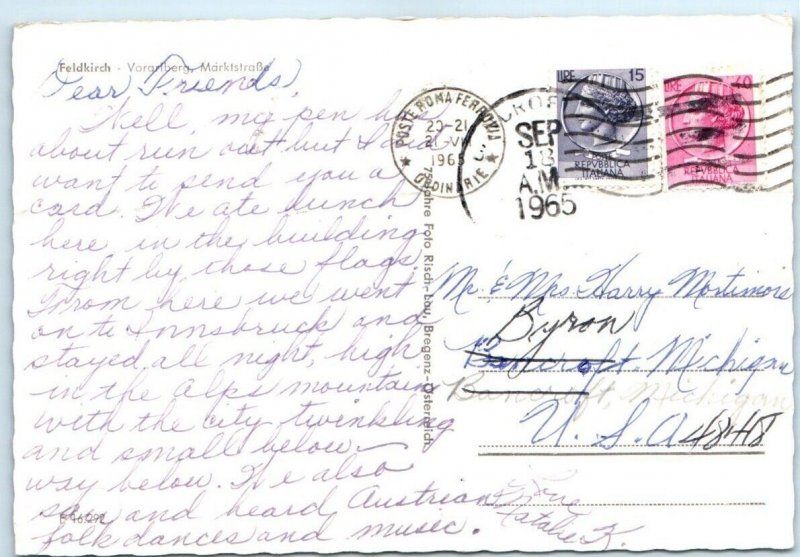 Feldkirch - Vorarlberg, Marktstraße
Dear Friends,
Well, my pen has
about run out but I did
want to send you a
card. We ate lunch
here in the building
right by those flags.
From here we went
on to Innsbruck and
stayed all night, high
in the Alps mountain
with the city twinkling
and small below
way below. We also
saw and heard Austrian
folk dances and music.
Love
Natalie K.
75 Jahre Foto Risch-Lau, Bregenz-Österreich
POSTE ROMA FERROVIA
20-21
1965
ORDINARIE
CROF
SEP
18
A.M.
1965
LIRE 15
REPVBBLICA
ITALIANA
LIRE
REPVBBLICA
ITALIANA
Mr. & Mrs. Harry Mortimore
Byron
Bancroft, Michigan
Bancroft, Michigan
U.S.A 48418